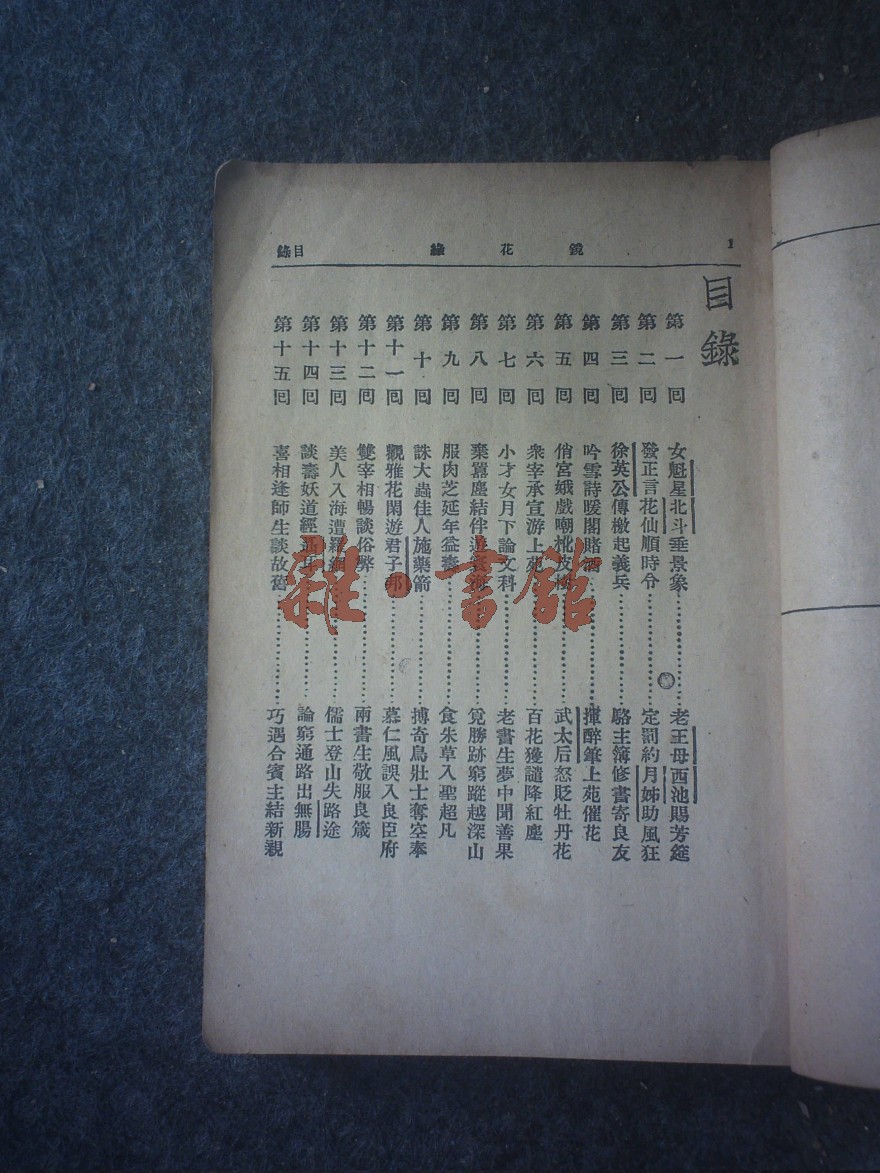 1 鏡花緣 目錄
目錄
第一回 女魁星北斗垂景象……老王母西池賜芳筵
第二回 發正言花仙順時令……定罰約月姊助風狂
第三回 徐英公傳檄起義兵……駱主簿修書寄良友
第四回 吟雪詩暖閣賭酒……揮醉筆上苑催花
第五回 俏宮娥戲嘲枇皮樹……武太后怒貶牡丹花
第六回 衆宰承宣游上苑……百花獲譴降紅塵
第七回 小才女月下論文科……老書生夢中聞善果
第八回 棄囂塵結伴遊寰海……覓勝跡窮蹤越深山
第九回 服肉芝延年益壽……食朱草入聖超凡
第十回 誅大蟲佳人施藥箭……搏奇鳥壯士奪空拳
第十一回 觀雅花閑遊君子邦……慕仁風誤入良臣府
第十二回 雙宰相暢談俗弊……兩書生敬服良箴
第十三回 美人入海遭羅網……儒士登山失路途
第十四回 談壽妖道經聶耳……論窮通路出無腸
第十五回 喜相逢師生談故舊……巧遇合賓主結新親
雜·書館